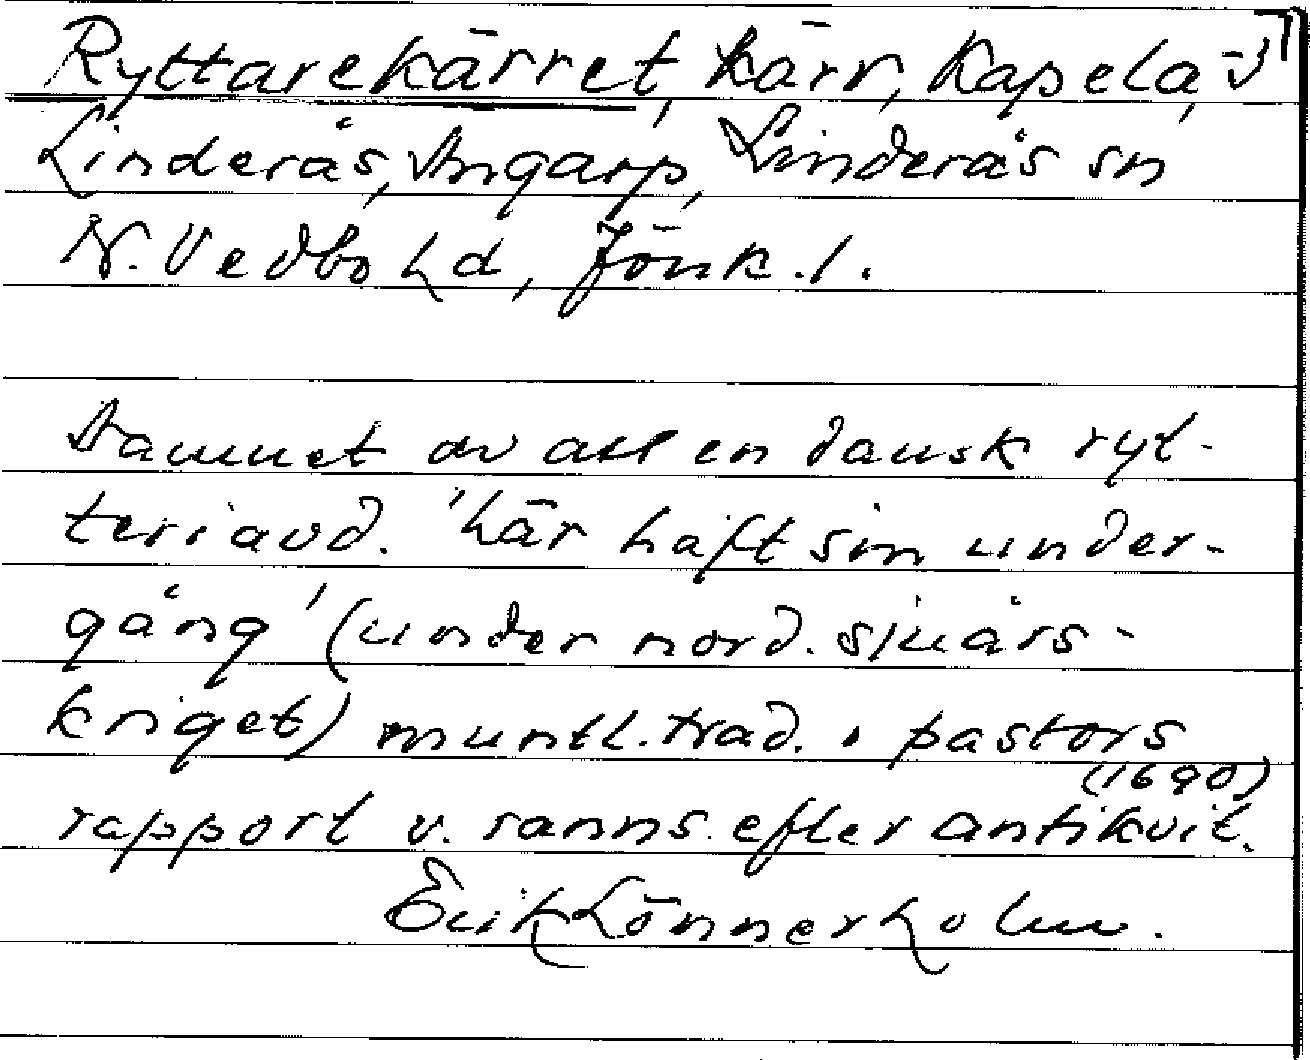 Ryttarekärret, kärr, Kapela,
Linderås, Angarp, Linderås sn
N. Vedbo hd, Jönk. l.
Namnet av att en dansk ryt-
teriavd. 'här haft sin under-
gång' (under nord. sjuårs-
kriget) muntl. trad. pastors
(1690)
rapport v. ranns. efter antikvit.
Erik Lönnerholm.